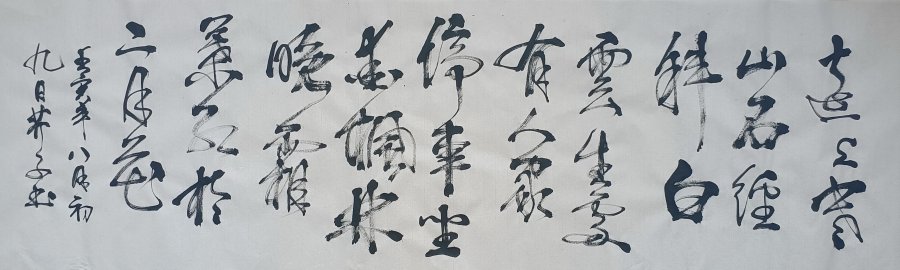 遠上寒
山石經
斜白
雲生處
有人家
停車坐
愛楓林
晚霜
葉紅於
二月花
壬寅年八月初
九日子书